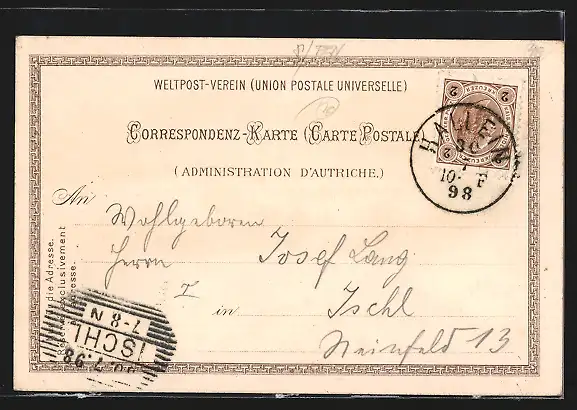 WELTPOST-VEREIN (UNION POSTALE UNIVERSELLE)
CORRESPONDENZ-KARTE (CARTE POSTALE)
(ADMINISTRATION D'AUTRICHE.)
2 2
KREUZER
98
An
Wohlgeboren
Herrn Josef Lang
I in Ischl
Steinfeld 13
die Adresse.
exclusivement
ISCHL
7-8 N